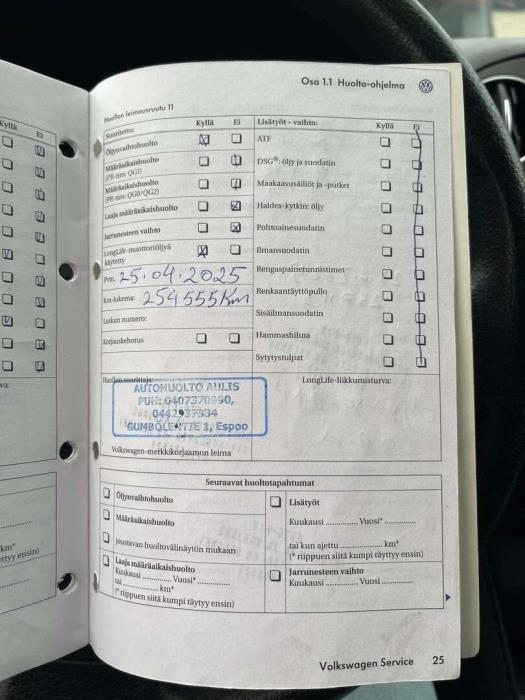 Osa 1.1 Huolto-ohjelma
Huollon leimausruutu 11
Kyllä Ei
Suoritettu: Kyllä Ei
Öljynvaihtohuolto
Määräaikaishuolto
(PR-nro: QG1)
Määräaikaishuolto
(PR-nro: QG0/QG2)
Laaja määräaikaishuolto
Jarrunesteen vaihto
LongLife-moottoriöljyä
käytetty
Pvm. 25.04.2025
Km-lukema: 254555Km
Laskun numero:
Korjauskehotus
Lisätyöt – vaihto: Kyllä Ei
ATF
DSG®: öljy ja suodatin
Maakaasusäiliöt ja -putket
Haldex-kytkin: öljy
Polttoainesuodatin
Ilmansuodatin
Rengaspainetunnistimet
Renkaantäyttöpullo
Sisäilmansuodatin
Hammashihna
Sytytystulpat
Huollon suorittaja:
AUTOHUOLTO AULIS
PUH: 0407370990,
0442937534
GUMBÖLENTIE 1, Espoo
Volkswagen-merkkikorjaamon leima
LongLife-liikkumisturva:
Seuraavat huoltotapahtumat
Öljynvaihtohuolto
Määräaikaishuolto
joustavan huoltovälinäytön mukaan
Laaja määräaikaishuolto
Kuukausi ............ Vuosi* ............
tai ............ km*
(* riippuen siitä kumpi täytyy ensin)
Lisätyöt
Kuukausi ............ Vuosi* ............
tai kun ajettu ............ km*
(* riippuen siitä kumpi täytyy ensin)
Jarrunesteen vaihto
Kuukausi ............ Vuosi ............
va:
km*
ttyy ensin)
Volkswagen Service 25